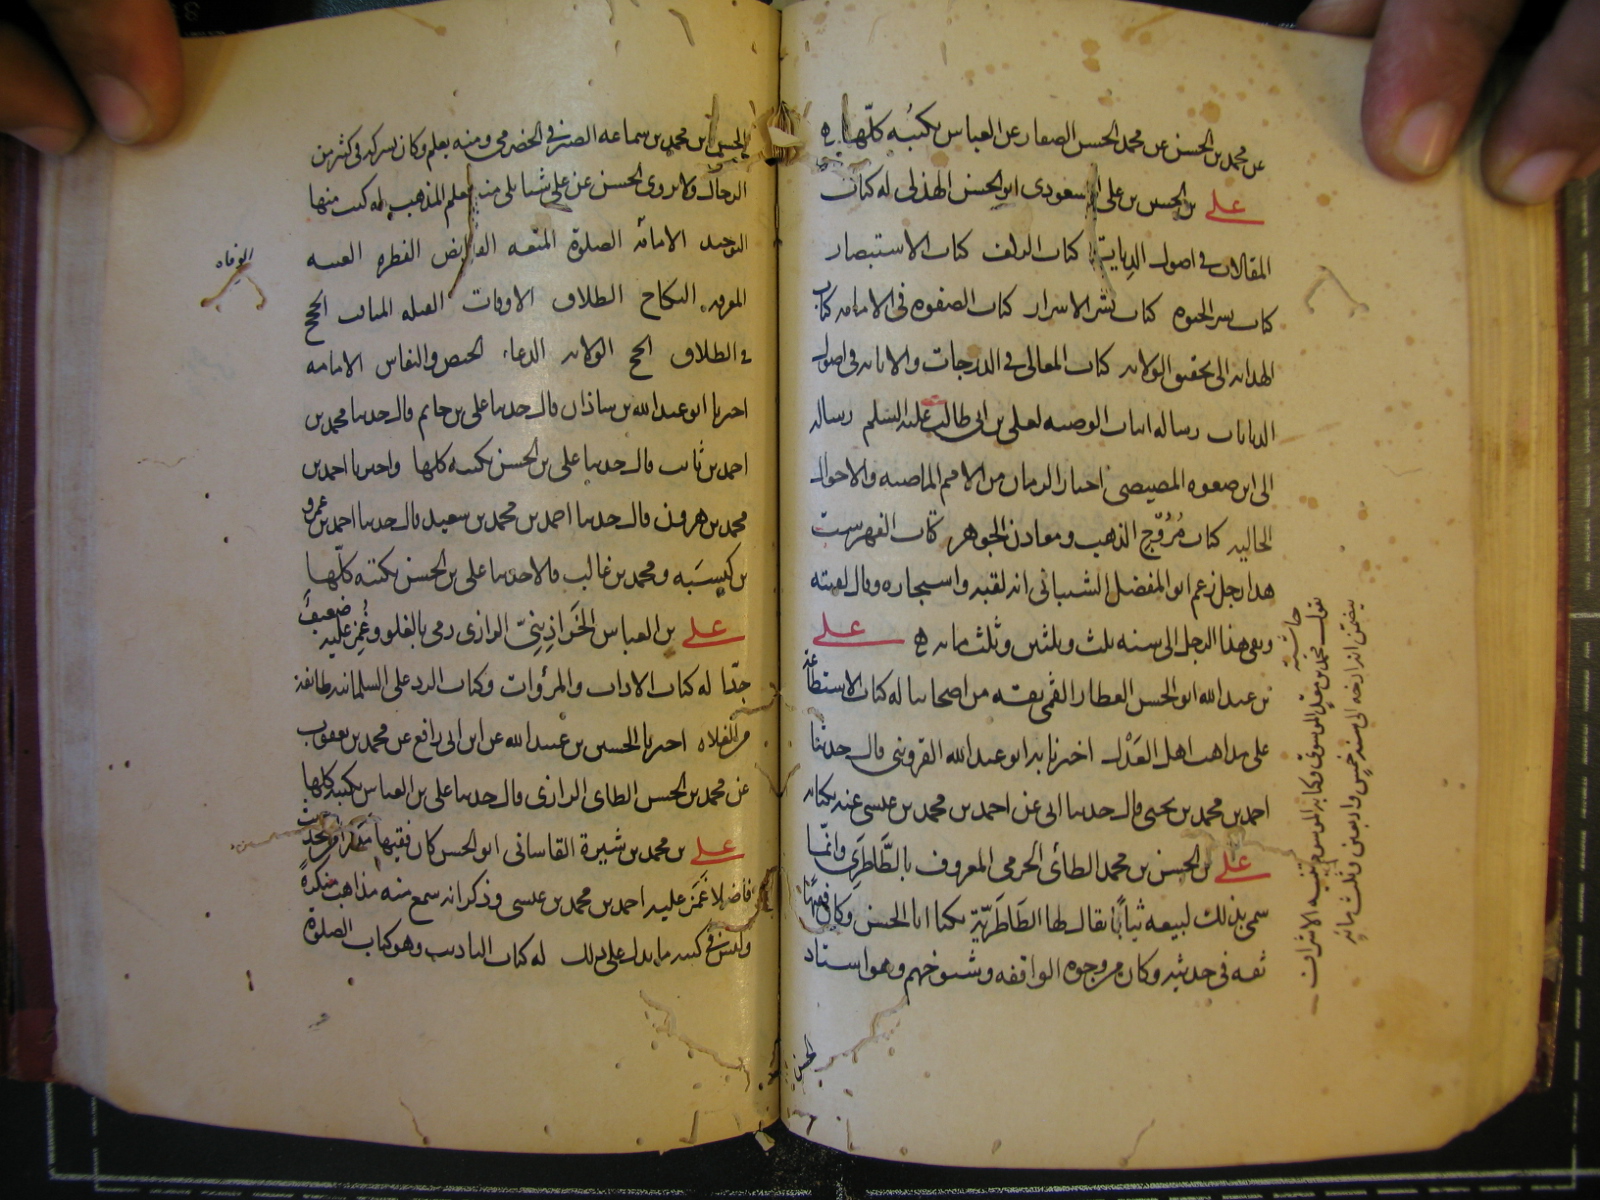 عن محمد بن الحسن عن محمد الحسن الصفار عن العباس بكتبه كلّها
علي بن الحسين بن علي المسعودي ابو الحسن الهذلي له كتاب
المقالات في اصول الديانات كتاب الزلف كتاب الاستبصار
كتاب سر الحيوة كتاب نشر الاسرار كتاب الصفوه في الامامه كتاب
الهدايه الى تحقيق الولايه كتاب المعالي في الدرجات والابانه في اصول
الديانات رساله اثبات الوصيه لعلي بن ابي طالب عليه السلم رساله
الى ابن صعوه المصيصي اخبار الزمان من الامم الماضيه والاحوال
الخاليه كتاب مُرُوّج الذهب ومعادن الجوهر كتاب الفهرست
هذا رجل زعم ابو المفضل الشيباني انه لقيه واستجازه وقال لقيته
وبقي هذا الرجل الى سنه ثلث وثلثين وثلث مائه علي
بن عبد الله ابو الحسن العطار القمي ثقه من اصحابنا له كتاب الاستطاعة
على مذاهب اهل العَدْل اخبرنا به ابو عبد الله القزويني قال حدثنا
احمد بن محمد بن يحيى قال حدثنا ابي عن احمد بن محمد بن عيسى عنه بكتابه
علي بن الحسن بن محمد الطائي الجرمي المعروف بالطَّاطَرِي وانّما
سمي بذلك لبيعه ثياباً يقال لها الطَاطَرِيّة يكنا ابا الحسن وكان فقيهًا
ثقه في حديثه وكان من وجوه الواقفه وشيوخهم وهو استاد
الحسن
حاشيه
يتضمن انه ارخه الى سنه خمس واربعين وثلث مائه
الحسن بن محمد بن سماعه الصيرفي الحضرمي ومنه تعلم وكان يشركه في كثير من
الرجال ولا يروي الحسن عن علي شيئا بلى منه تعلم المذهب له كتب منها
التوحيد الامامة الصلوة المتعه الفرايض الفطره الغيبه
الوفاه
المعرفه النكاح الطلاق الاوقات القبله المناقب الحج
في الطلاق الحج الولايه الدعاء الحيض والنفاس الامامه
اخبرنا ابو عبد الله بن شاذان قال حدثنا علي بن حاتم قال حدثنا محمد بن
احمد بن ثابت قال حدثنا علي بن الحسن بكتبه كلها واخبرنا احمد بن
محمد بن هرون قال حدثنا احمد بن محمد بن سعيد قال حدثنا احمد بن عمرو
بن كَيسَبَه ومحمد بن غالب قالا حدثنا علي بن الحسن بكتبه كلّها
علي بن العباس الخَرَاذِينِيّ الرازي رمي بالغلو وغُمِز عليه ضعيف
جدّا له كتاب الاداب والمرؤات وكتاب الرد على السلمانيه طائفة
من الغلاه اخبرنا الحسين بن عبيد الله عن ابن ابي رافع عن محمد بن يعقوب
عن محمد بن الحسن الطائي الرازي قال حدثنا علي بن العباس بكتبه كلها
علي بن محمد بن شيرة القاساني ابو الحسن كان فقيها مكثرا من الحديث
فاضلا غَمَز عليه احمد بن محمد بن عيسى وذكر انه سمع منه مذاهب منكرة
وليس في كتبه ما يدل على ذلك له كتاب التاديب وهو كتاب الصلوة